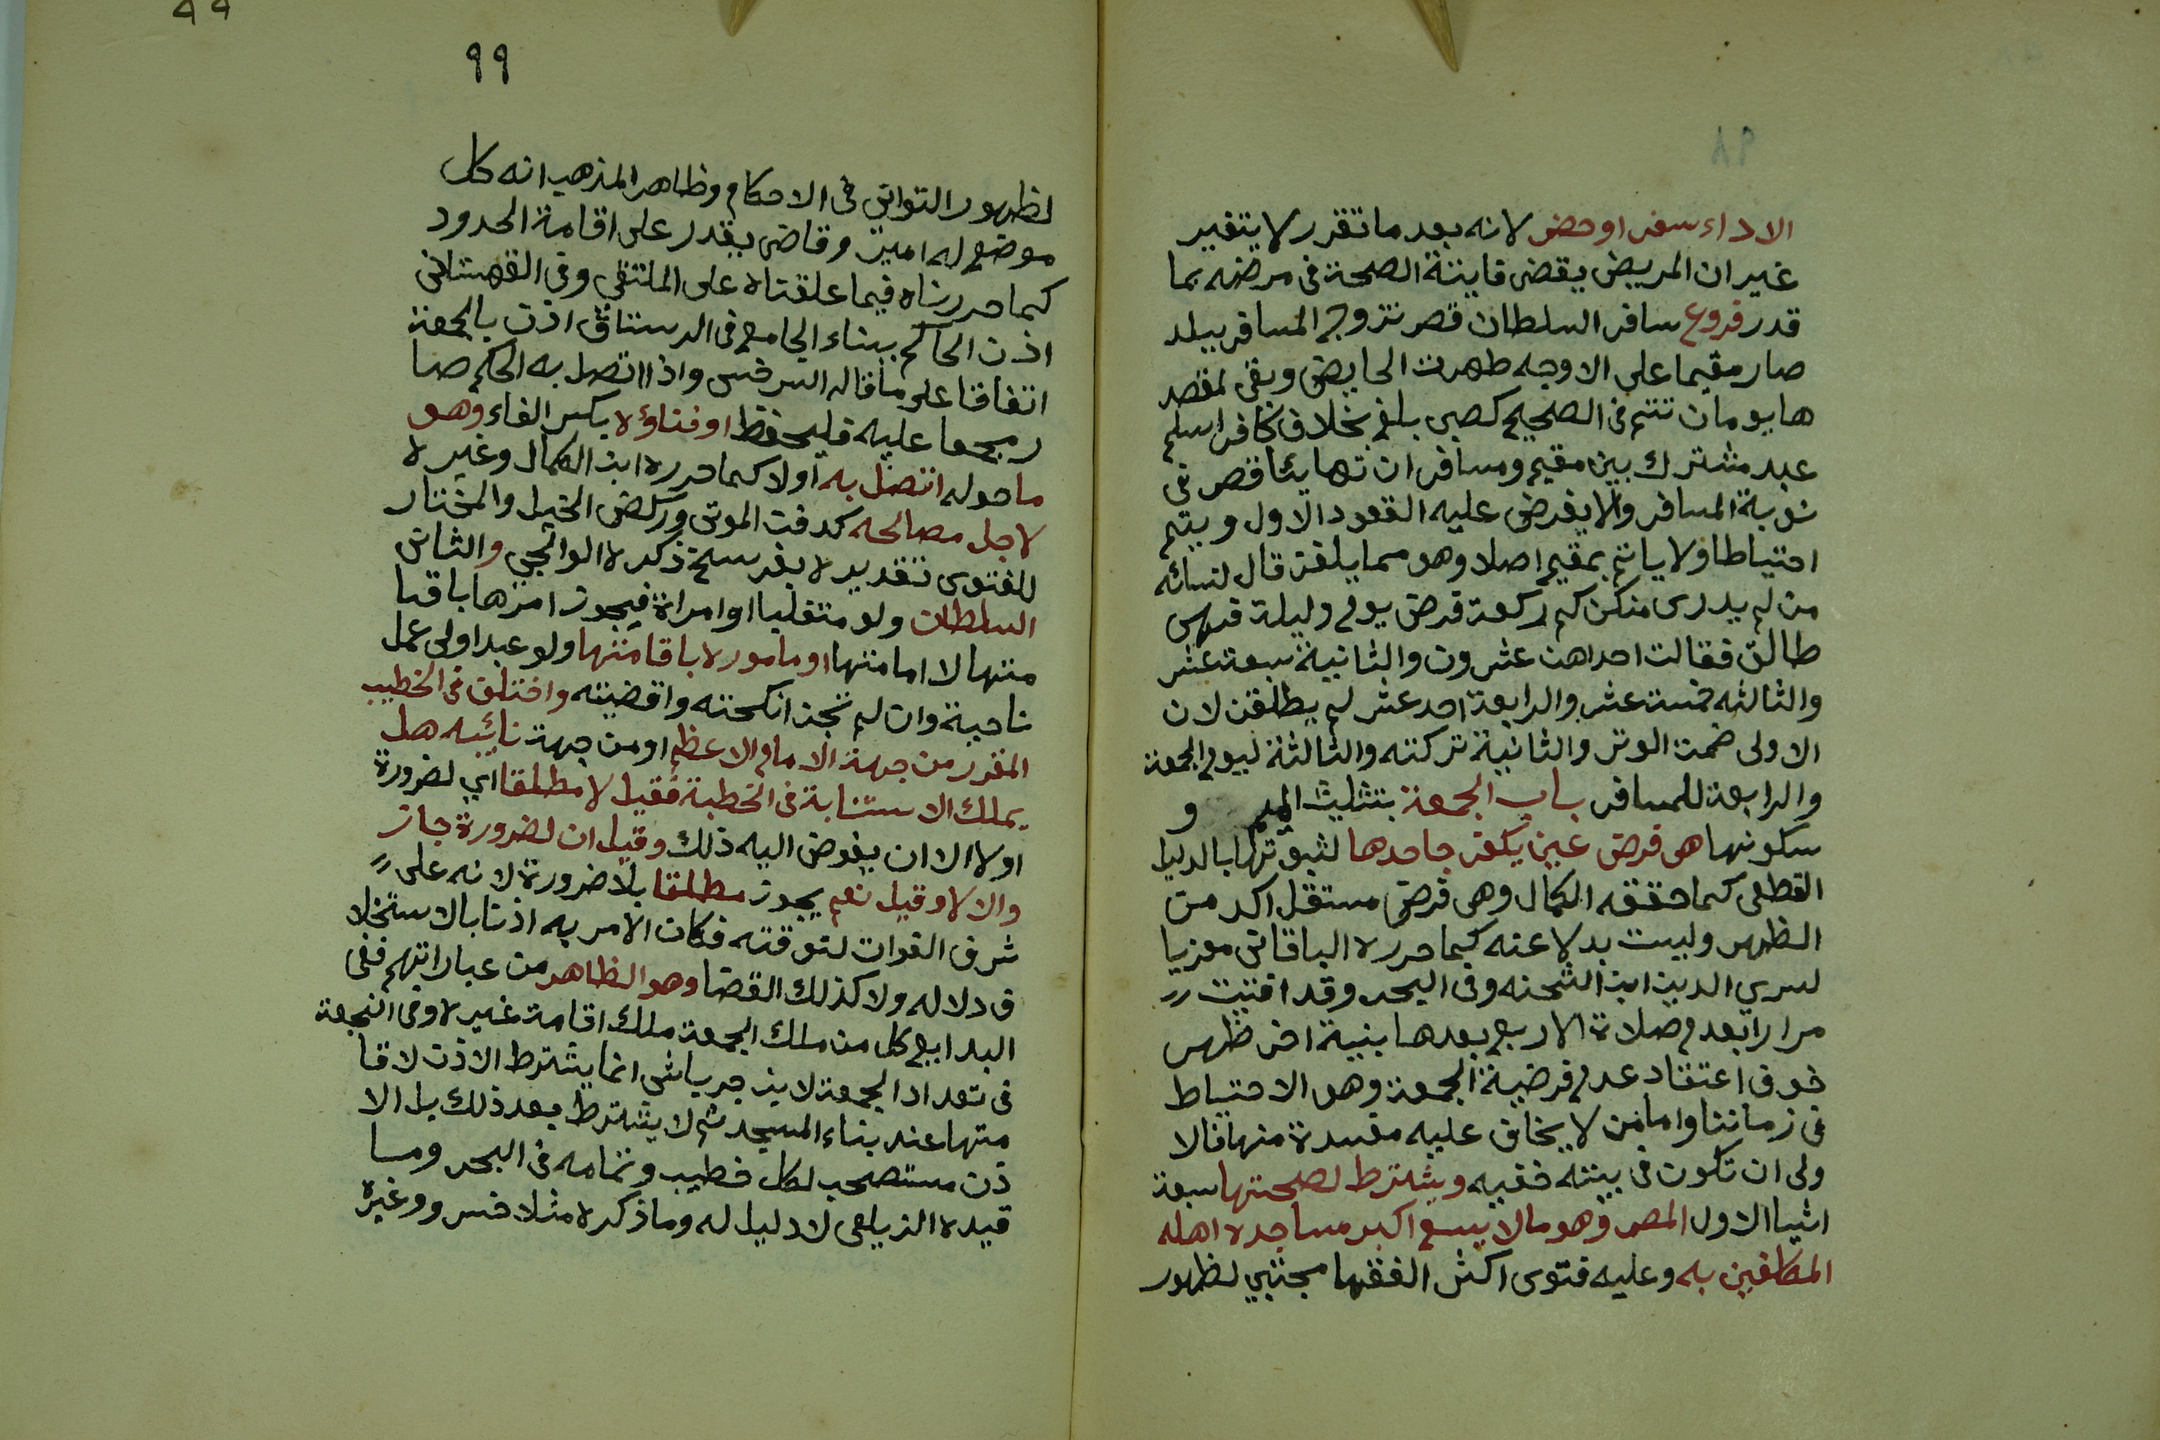 الاداء سفر اوحضر لانه بعد ما تقرر لا يتغير
غير ان المريض يقضى فايتة الصحة فى مرضه بما
قدر فروع سافر السلطان قصر تزوج المسافر ببلد
صار مقيما على الاوجه طهرت الحايض وبقى لمقصد
ها يومان تتم فى الصحيح كصبى بلغ بخلاف كافر اسلم
عبد مشترك بين مقيم ومسافر ان تهايئا قصر فى
نوبة المسافر والا يفرض عليه القعود الاول ويتم
احتياطا ولا ياتم بمقيم اصلا وهو مما يلغز قال لنسائه
من لم يدرى منكن كم ركعة فرض يوم وليلة فهى
طالق فقالت احداهن عشرون والثانية سبعة عشر
والثالثه خمسة عشر والرابعة احد عشر لم يطلقن لان
الاولى ضمت الوتر والثانية تركته والثالثة ليوم الجمعة
والرابعة للمسافر باب الجمعة بتثليث الميم و
سكونها هى فرض عين يكفر جاحدها لثبوتها بالدليل
القطعى كما حققه الكمال وهى فرض مستقل اكد من
الظهر وليست بدلا عنه كما حرره الباقانى معزيا
لسري الدين ابن الشحنه وفى البحر وقد افتيت
مرارا بعدم صلاة الاربع بعدها بنية اخر ظهر
خوف اعتقاد عدم فرضية الجمعة وهو الاحتياط
فى زماننا واما من لا يخاف عليه مفسدة منها فالا
ولى ان تكون فى بيته خفيه ويشترط لصحتها سبعة
اشيا الاول المصر وهو مالا يسع اكبر مساجده اهله
المكلفين به وعليه فتوى اكثر الفقها مجتبي لظهور
٩٩
لظهور التوانى فى الاحكام وظاهر المذهب انه كل
موضع له امير وقاضى يقدر على اقامة الحدود
كما حررناه فيما علقناه على الملتقى وفى القهستانى
اذن الحاكم ببناء الجامع فى الرستاق اذن بالجمعة
اتفاقا على ما قاله السرخسى واذا اتصل به الحكم صا
ر مجمعا عليه فليحفظ اوفناؤه بكسر الفاء وهو
ما حوله اتصل به اولا كما حرره ابن الكمال وغيره
لاجل مصالحه كدفن الموتى وركض الخيل والمختار
للفتوى تقديره بفرسخ ذكره الوالجي والثانى
السلطان ولو متغلبا او امراة فيجوز امرها باقا
متها لا امامتها او ماموره باقامتها ولو عبدا ولى عمل
ناحية وان لم تجز انكحته واقضيته واختلف فى الخطيب
المقرر من جهة الامام الاعظم او من جهة نائبه هل
يملك الاستنابة فى الخطبة فقيل لا مطلقا اي لضرورة
اولا الا ان يفوض اليه ذلك وقيل ان لضرورة جاز
والا لا وقيل نعم يجوز مطلقا بلا ضرورة لانه على
شرف الفوات لتوقته فكان الامر به اذنا باك ستخلا
ف دلاله ولا كذلك القضا وهو الظاهر من عباراتهم ففى
البدايع كل من ملك الجمعة ملك اقامة غيره وفى النجعة
فى تعداد الجمعة لابن جرباشى انما يشترط الاذن لاقا
متها عند بناء المسجد ثم لا يشترط بعد ذلك بل الا
ذن مستصحب لكل خطيب وتمامه فى البحر وما
قيده الزيلعى لا دليل له وما ذكره مثلا خسرو وغيره